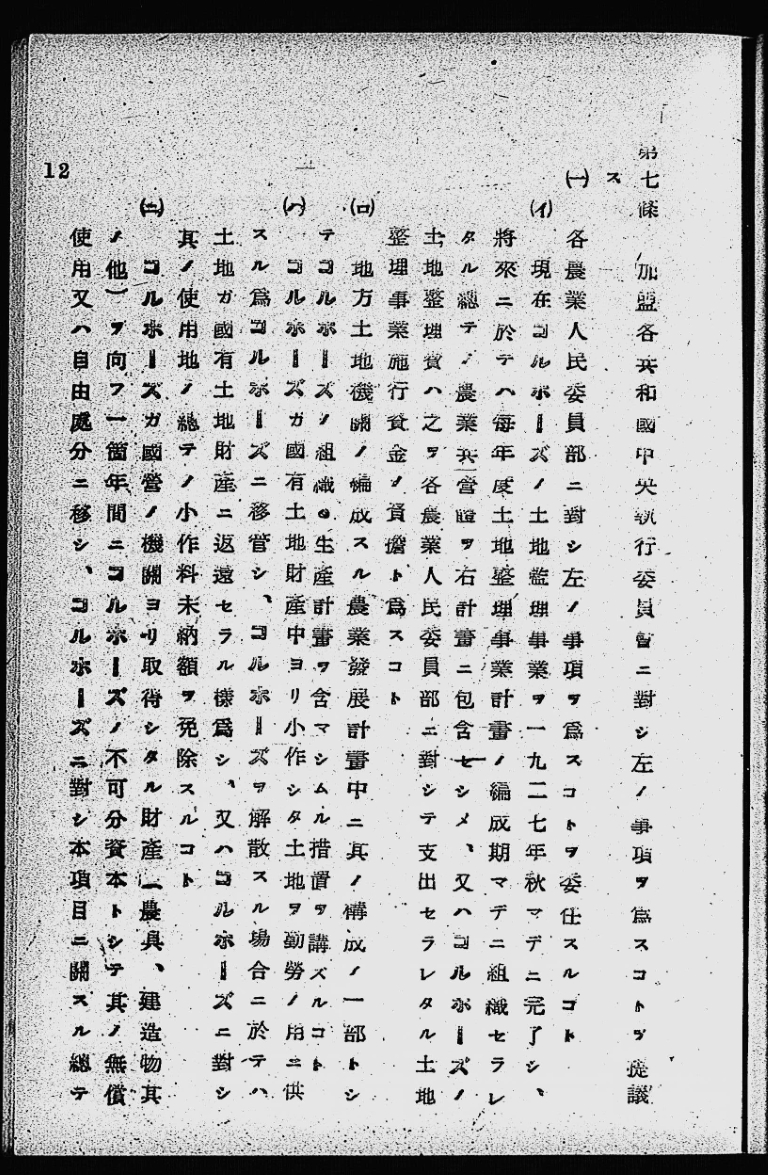 第七條 加盟各共和國中央執行委員會ニ對シ左ノ事項ヲ爲スコトヲ提議
ス
(一) 各農業人民委員部ニ對シ左ノ事項ヲ爲スコトヲ委任スルコト
(イ) 現在コルホーズノ土地監理事業ヲ一九二七年秋マデニ完了シ、
將來ニ於テハ毎年度土地整理事業計畫ノ編成期マデニ組織セラレ
タル總テノ農業共營體ヲ右計畫ニ包含セシメ、又ハコルホーズノ
土地整理費ハ之ヲ各農業人民委員部ニ對シテ支出セラレタル土地
整理事業施行資金ノ負擔ト爲スコト
(ロ) 地方土地機關ノ編成スル農業發展計畫中ニ其ノ構成ノ一部トシ
テコルホーズノ組織的生產計畫ヲ含マシムル措置ヲ講ズルコト
(ハ) コルホーズガ國有土地財產中ヨリ小作シタ土地ヲ勤勞ノ用ニ供
スル爲コルホーズニ移管シ、コルホーズヲ解散スル場合ニ於テハ
土地ガ國有土地財產ニ返還セラル樣爲シ、又ハコルホーズニ對シ
其ノ使用地ノ總テノ小作料未納額ヲ免除スルコト
(ニ) コルホーズガ國營ノ機關ヨリ取得シタル財產(農具、建造物其
ノ他)ヲ向フ一箇年間ニコルホーズノ不可分資本トシテ其ノ無償
使用又ハ自由處分ニ移シ、コルホーズニ對シ本項目ニ關スル總テ
12